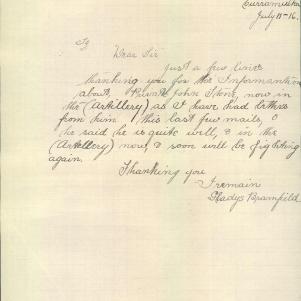 Curramulka
July 15-16.
Dear Sir
just a few lines
thanking you for the Informantion
about, Privat John Stone, now in
the (Artillery) as I have had letters
from him this last few mails,
he said he is quite well, & in the
(Artillery) now, & soon will be fighting
again.
Thanking you
I remain
Gladys Bramfield